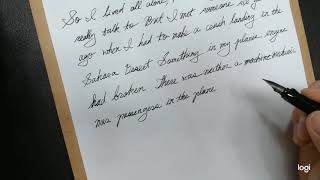 So I lived all alone,
really talk to But I met someone
ago when I had to make a crash landing in the
Sahara Desert Something in my plane engine
had broken There was neither a machine
nus passengers in the plane
logi